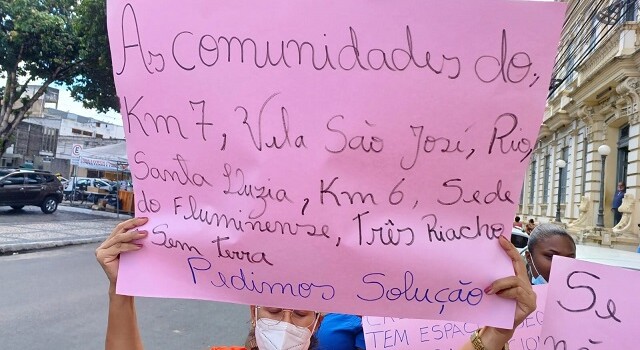 As comunidades do,
Km7, Vila São José, Rio,
Santa Luzia, Km 6, Sede
do Fluminense, Três Riacho
Sem terra
Pedimos Solução
TEM ESPAÇ
Se